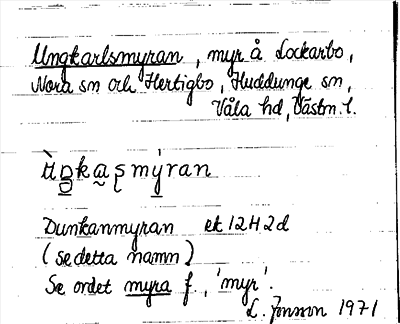 Ungkarlsmyran, myr å Lockarbo,
Nora sn och Hertigbo, Huddunge sn,
Våla hd, Västm. l.
Dunkanmyran ek 12H2d
(se detta namn)
Se ordet myra f., 'myr'.
L. Jonson 1971